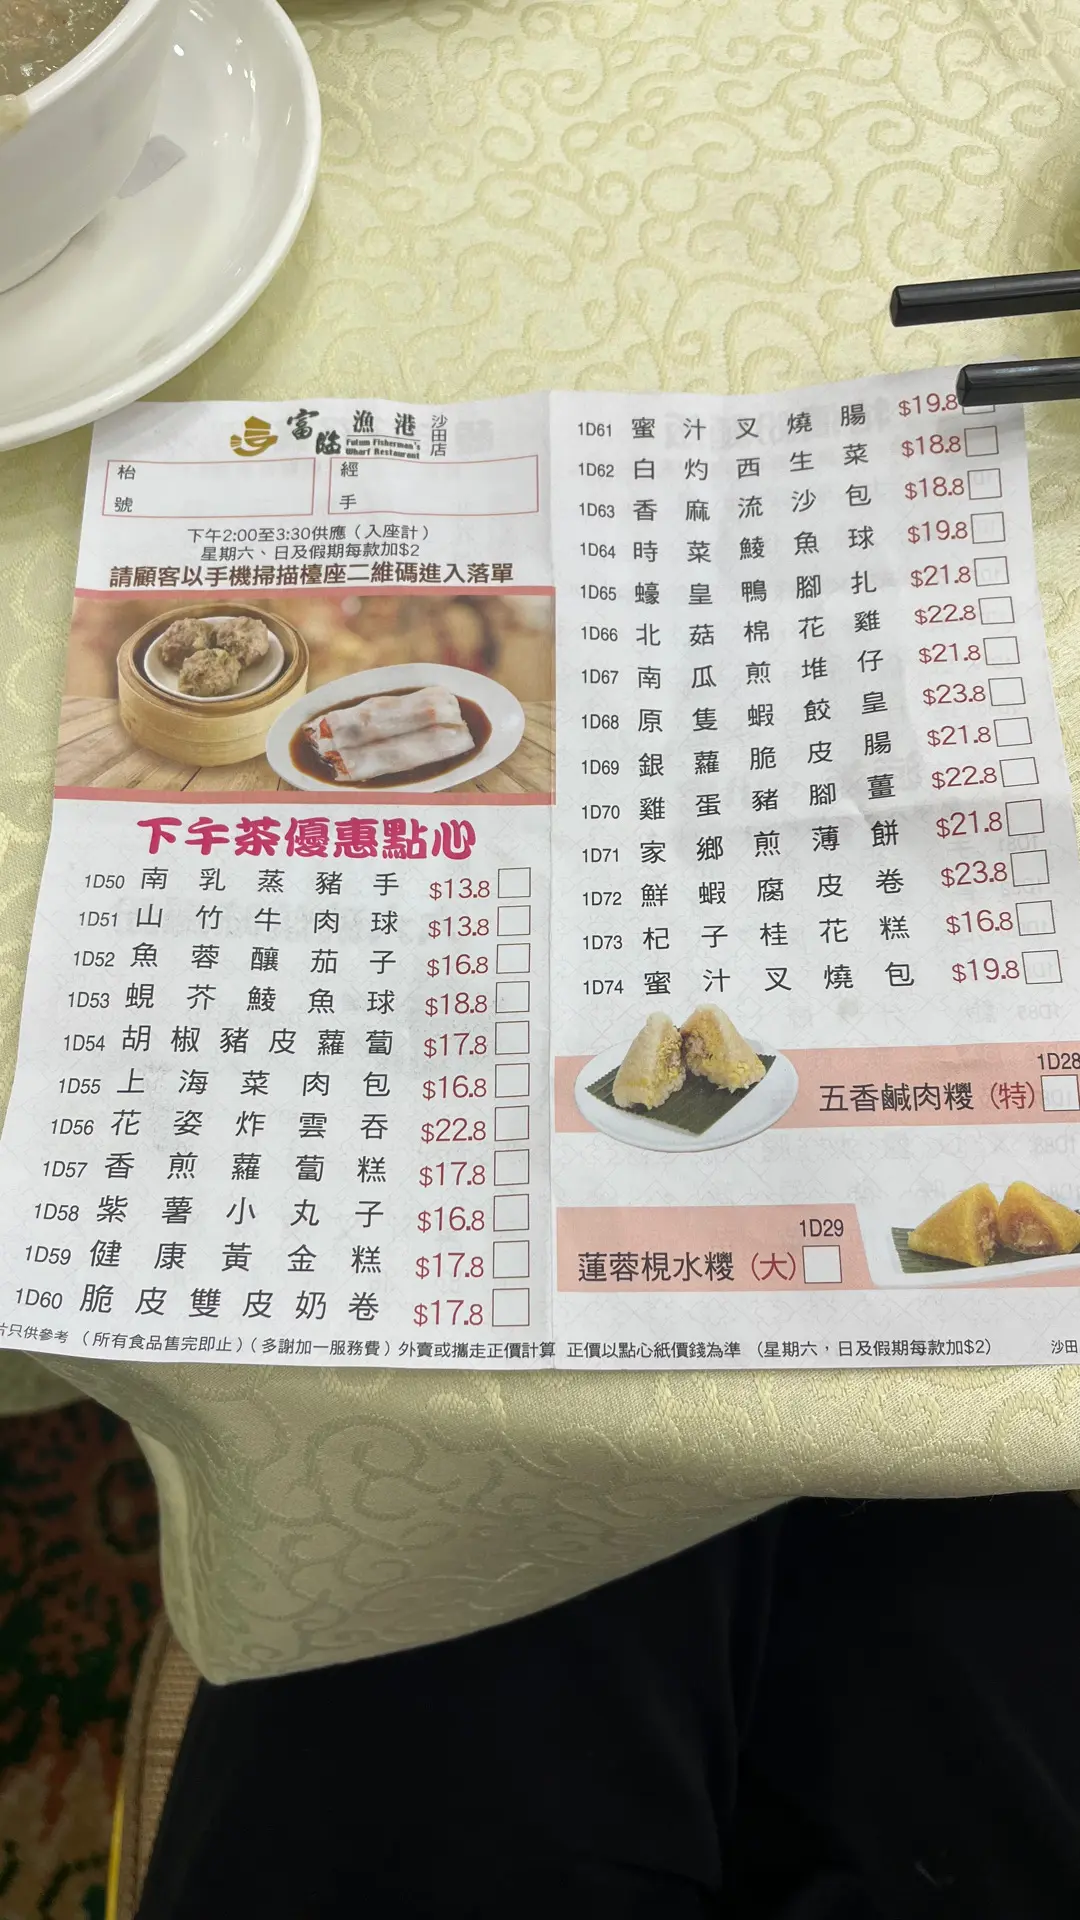 富臨漁港 沙田店
Fulum Fisherman's
Wharf Restaurant
枱號
經手
下午2:00至3:30供應（入座計）
星期六、日及假期每款加$2
請顧客以手機掃描檯座二維碼進入落單
下午茶優惠點心
1D50 南乳蒸豬手 $13.8
1D51 山竹牛肉球 $13.8
1D52 魚蓉釀茄子 $16.8
1D53 蜆芥鯪魚球 $18.8
1D54 胡椒豬皮蘿蔔 $17.8
1D55 上海菜肉包 $16.8
1D56 花姿炸雲吞 $22.8
1D57 香煎蘿蔔糕 $17.8
1D58 紫薯小丸子 $16.8
1D59 健康黃金糕 $17.8
1D60 脆皮雙皮奶卷 $17.8
1D61 蜜汁叉燒腸 $19.8
1D62 白灼西生菜 $18.8
1D63 香麻流沙包 $18.8
1D64 時菜鯪魚球 $19.8
1D65 蠔皇鴨腳扎 $21.8
1D66 北菇棉花雞 $22.8
1D67 南瓜煎堆仔 $21.8
1D68 原隻蝦餃皇 $23.8
1D69 銀蘿脆皮腸 $21.8
1D70 雞蛋豬腳薑 $22.8
1D71 家鄉煎薄餅 $21.8
1D72 鮮蝦腐皮卷 $23.8
1D73 杞子桂花糕 $16.8
1D74 蜜汁叉燒包 $19.8
1D28
五香鹹肉糭（特）
1D29
蓮蓉梘水糭（大）
片只供參考（所有食品售完即止）（多謝加一服務費）外賣或攜走正價計算 正價以點心紙價錢為準（星期六，日及假期每款加$2） 沙田